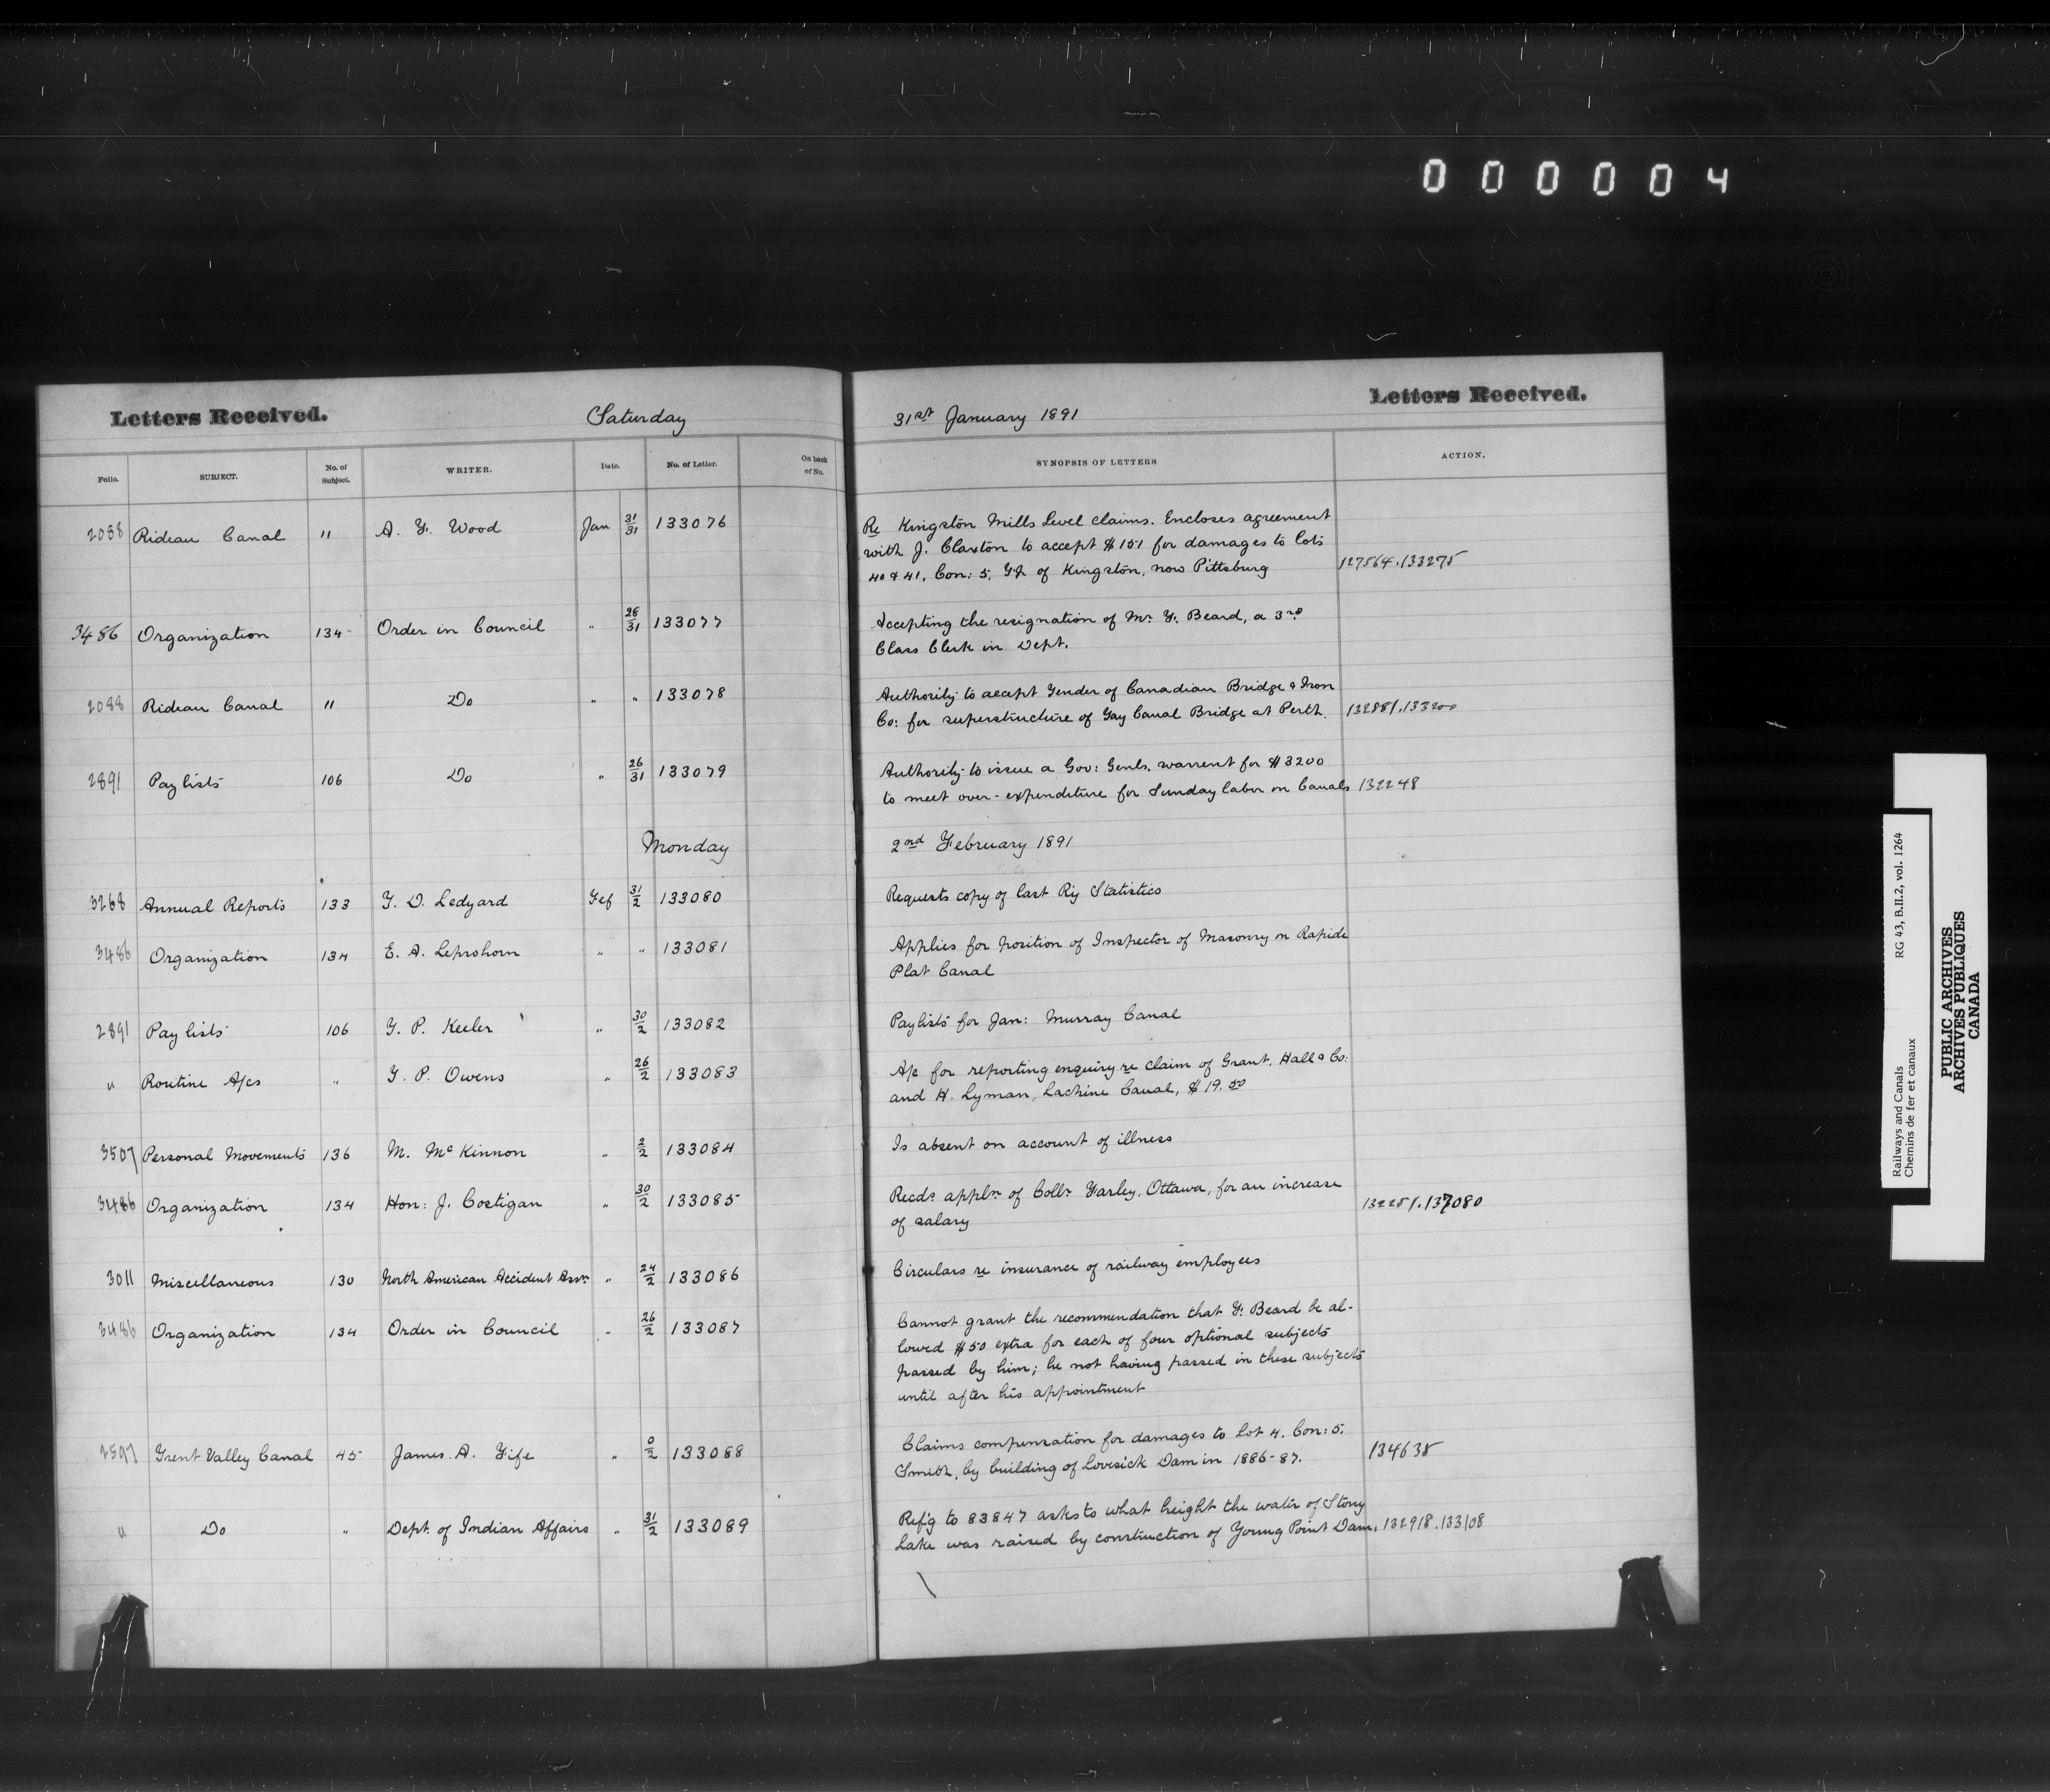 000004
Letters Received. Saturday 31st January 1891 Letters Received.
Folio. SUBJECT. No. of Subject. WRITER. Date. No. of Letter. On back of No. SYNOPSIS OF LETTERS ACTION.
2088 Rideau Canal 11 A. F. Wood Jan 31/31 133076 Re Kingston Mills Level claims. Encloses agreement
with J. Claxton to accept $151 for damages to lots
40 & 41, Con: 5, Tp of Kingston, now Pittsburg 127564.133275
3486 Organization 134 Order in Council " 28/31 133077 Accepting the resignation of Mr. F. Beard, a 3rd
Class Clerk in Dept.
2088 Rideau Canal 11 Do " " 133078 Authority to accept Tender of Canadian Bridge & Iron
Co: for superstructure of Tay Canal Bridge at Perth. 132881.133200
2891 Paylists 106 Do " 26/31 133079 Authority to issue a Gov: Genls. warrent for $3200
to meet over-expenditure for Sunday labor on Canals 132248
Monday 2nd February 1891
3268 Annual Reports 133 T. D. Ledyard Feb 31/2 133080 Requests copy of last Ry Statistics
3486 Organization 134 E. A. Leprohorn " " 133081 Applies for position of Inspector of Masonry on Rapide
Plat Canal
2891 Paylists 106 T. P. Keeler " 30/2 133082 Paylists for Jan: Murray Canal
" Routine A/cs " T. P. Owens " 26/2 133083 A/c for reporting enquiry re claim of Grant, Hall & Co:
and H. Lyman, Lachine Canal, $19.50
3507 Personal Movements 136 M. McKinnon " 2/2 133084 Is absent on account of illness
3486 Organization 134 Hon: J. Costigan " 30/2 133085 Recds appln of Collr Farley, Ottawa, for an increase
of salary 132251.137080
3011 Miscellaneous 130 North American Accident Assn " 24/2 133086 Circulars re insurance of railway employees
3486 Organization 134 Order in Council " 26/2 133087 Cannot grant the recommendation that F. Beard be al-
lowed $50 extra for each of four optional subjects
passed by him; he not having passed in these subjects
until after his appointment
2597 Trent Valley Canal 45 James. A. Fife " 0/2 133088 Claims compensation for damages to Lot 4. Con: 5.
Smith, by building of Lovesick Dam in 1886-87. 134635
" Do " Dept. of Indian Affairs " 31/2 133089 Refg to 83847 asks to what height the water of Stony
Lake was raised by construction of Young Point Dam. 132918.133108
Railways and Canals RG 43, B.II.2, vol. 1264
Chemins de fer et canaux
PUBLIC ARCHIVES
ARCHIVES PUBLIQUES
CANADA